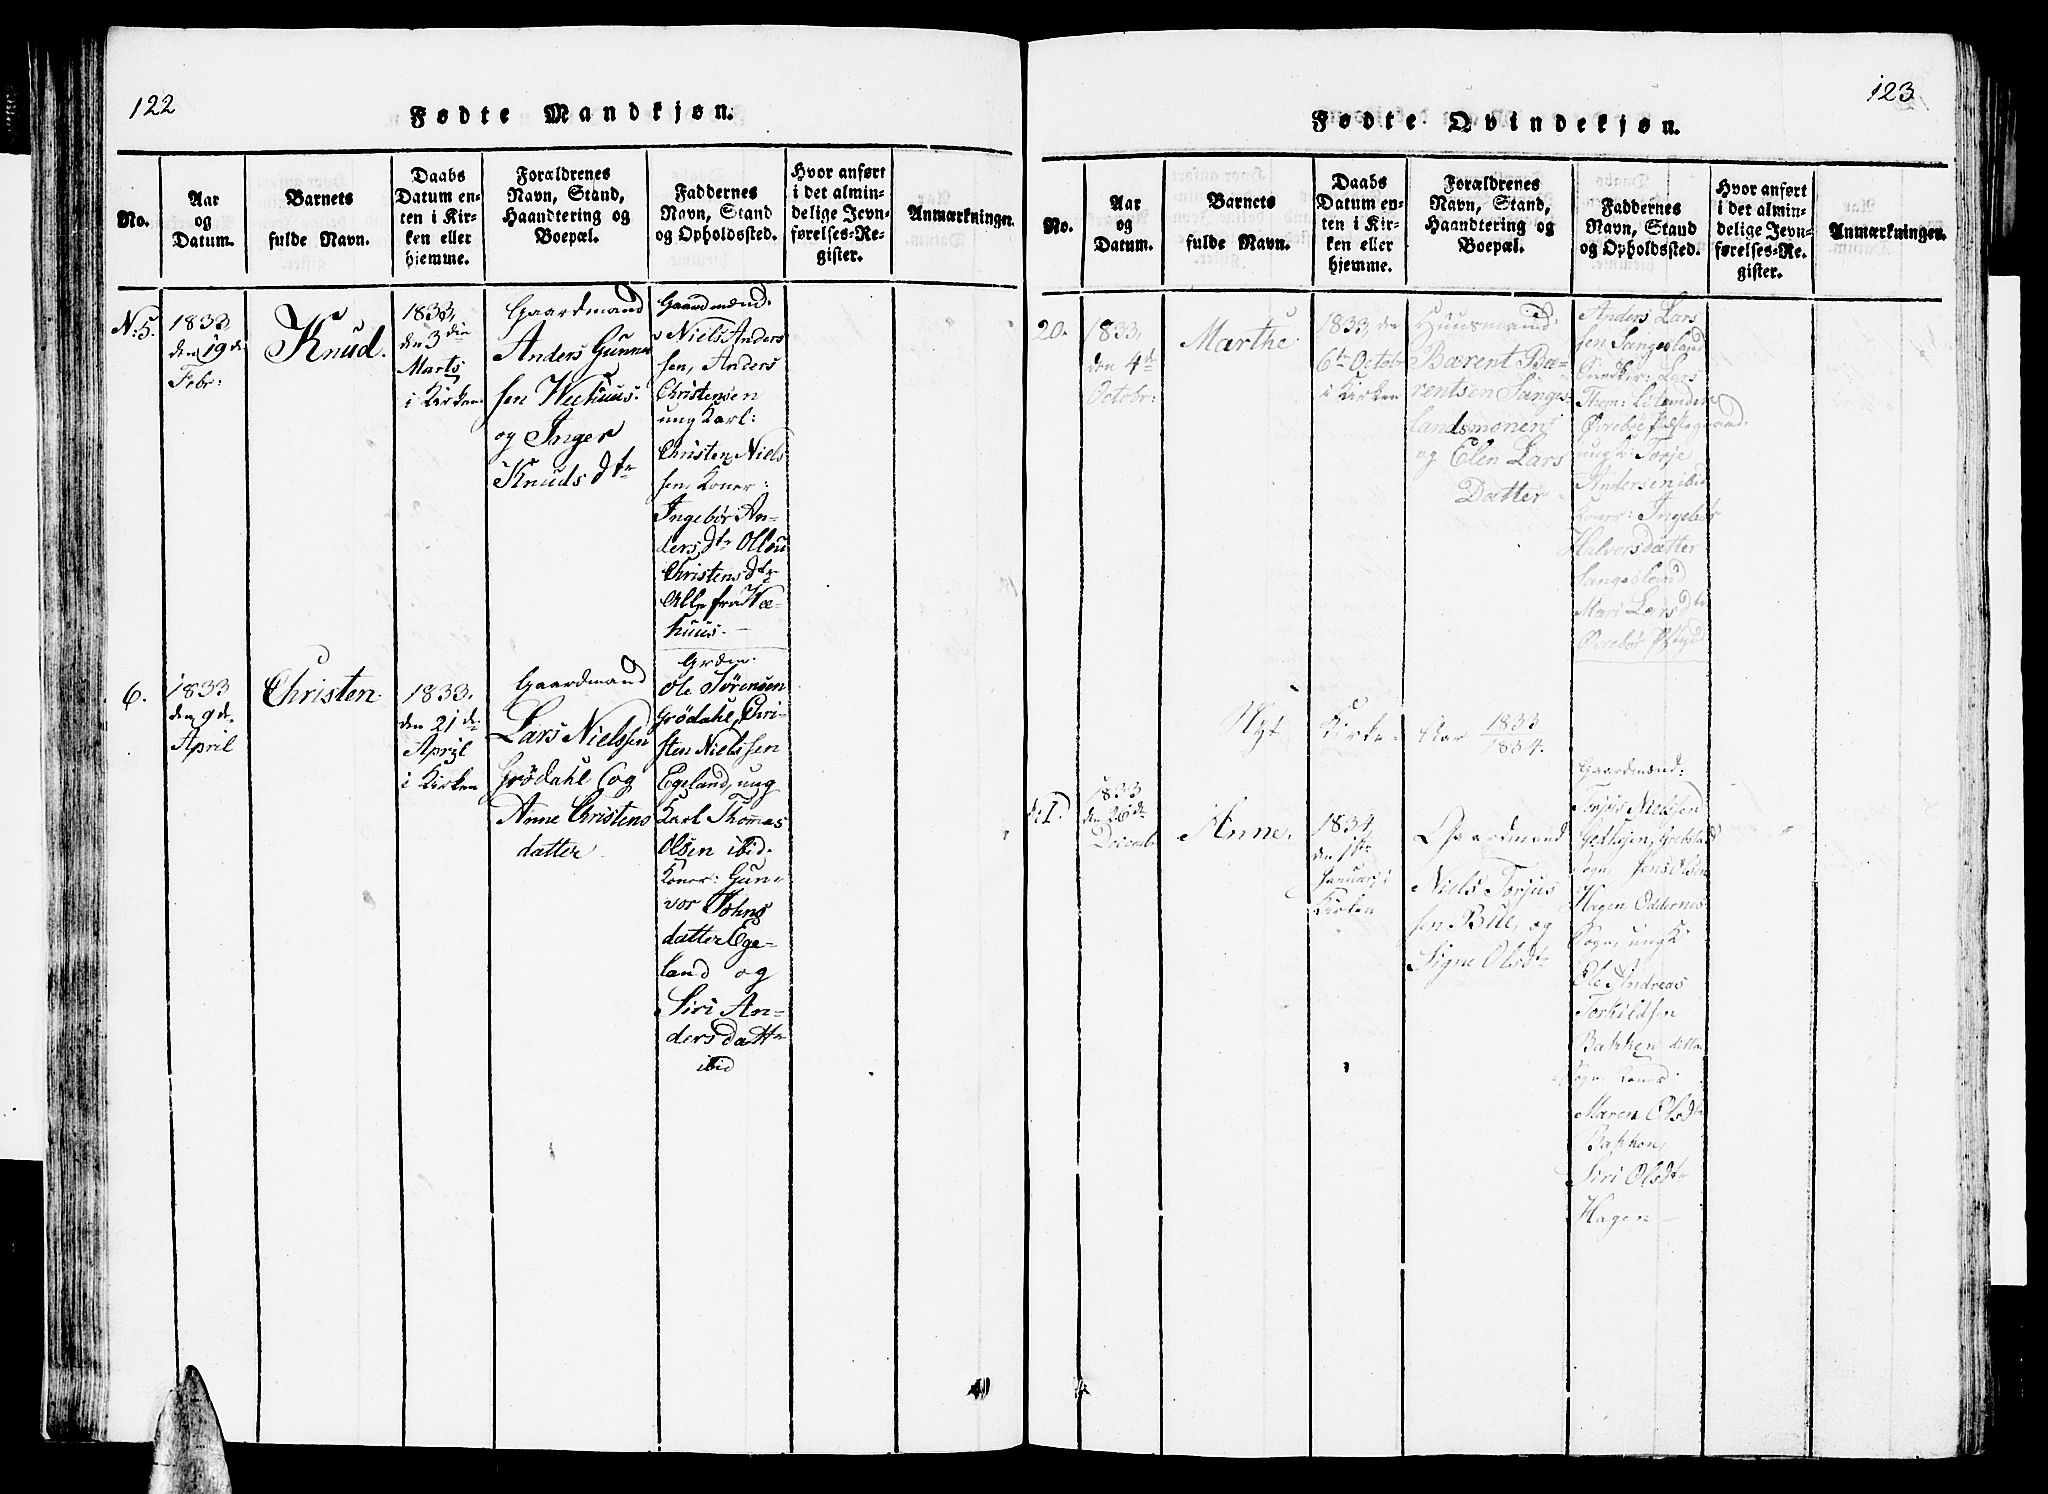 122
Fødte Mandkjøn.
No.
Aar
og
Datum.
Barnets
fulde Navn.
Daabs
Datum en-
ten i Kir-
ken eller
hjemme.
Forældrenes
Navn, Stand,
Haandtering og
Boepæl.
Faddernes
Navn, Stand
og Opholdssted.
Hvor anført
i det almin-
delige Jevn-
førelses-Re-
gister.
Anmærkninger.
N:5.
1833
den 19de
Febr:
Knud.
1833,
den 3die
Marts
i Kirken.
Gaardmand
Anders Gunne
sen Weehuus.
og Inger
Knuds Dtr
Gaardmænd:
Niels Anders
sen, Anders
Christensen
ung Karl:
Christen Niels
sen, Koner:
Ingebör An-
ders Dtr Ollou
Christens Dtr
Alle fra We-
huus.
6.
1833
den 9de
April
Christen.
1833.
den 21de
April
i Kirken
Gaardmand
Lars Nielssen
Grödahl og
Anne Christens
datter
Grdm:
Ole Sörensen
Grödahl, Chri-
sten Nielssen
Egeland, ung
Karl Thomas
Olsen ibid.
Koner: Gun-
vor Johns
datter Ege-
land og
Siri An-
ders datter
ibid
123
Fødte Qvindekjøn.
No.
Aar
og
Datum.
Barnets
fulde Navn.
Daabs
Datum en-
ten i Kir-
ken eller
hjemme.
Forældrenes
Navn, Stand,
Haandtering og
Boepæl.
Faddernes
Navn, Stand
og Opholdssted.
Hvor anført
i det almin-
delige Jevn-
førelses-Re-
gister.
Anmærkninger.
20.
1833,
den 4de
Octobr:
Marthe
1833, den
6te Octobr
i Kirken
Huusmand
Bærent Bæ-
rentsen Sanges-
landsmonen
og Elen Lars
Datter
Anders Lars
sen Sangesland
Lars
Thom:
Övrebö
ung K: Torje
Andersen ibid
Koner: Ingebör
Halvorsdatter
Sangesland
Mari Lars Dtr
Övrebör
Nyt Kirke- Aar 1833
1834.
N:1.
1833
den 26de
Decembr
Anne.
1834,
den 1ste
Januar, i
Kirken
Gaardmand
Niels Torjus
sen Bue, og
Signe Olsdtr
Gaardmænd:
Torjus Nielssen
Sogn, Jens Olsen
Hagen, Oddernes
Sogn, ung K:
Ole Andreas
Torkildsen
Bakken ditto
Sogn, Koner:
Maren Olsdtr
Bakken,
Siri Olsdtr
Hagen